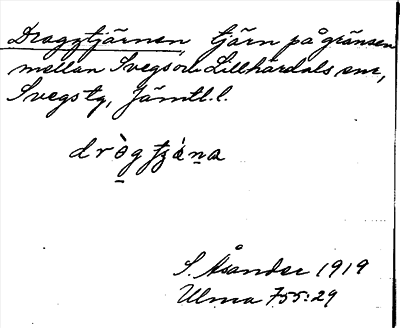 Draggtjärnen, tjärn på gränsen
mellan Svegs och Lillhärdals snr,
Svegs tg, Jämtl. l.
dròg tʒæ̀na
S. Åsander 1919
Ulma 755:29